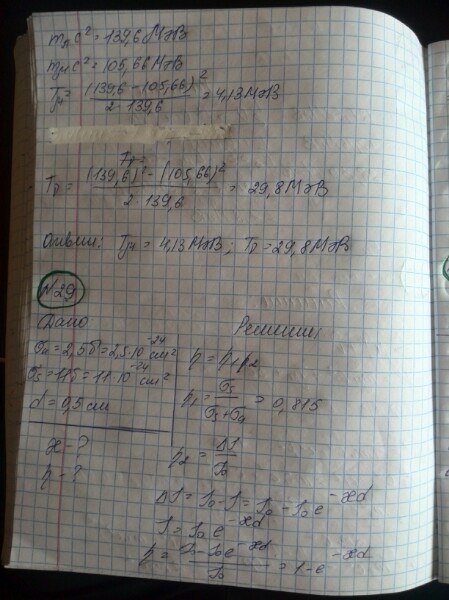 mπc² = 139,6 МэВ
mμc² = 105,66 МэВ
Tμ = (139,6 - 105,66)² / 2·139,6 = 4,13 МэВ
Tν =
Tν = (139,6)² - (105,66)² / 2·139,6 = 29,8 МэВ
Ответ: Tμ = 4,13 МэВ; Tν = 29,8 МэВ
№29
Дано Решение
σ = 2,5б = 2,5·10⁻²⁴ см²
σ = 11б = 11·10⁻²⁴ см²
d = 0,5 см
æ - ?
p - ?
p = p₁p₂
p₁ = / = 0,815
p₂ = ΔJ / J₀
ΔJ = J₀ - J = J₀ - J₀e^(-æd)
J = J₀e^(-æd)
p = J₀ - J₀e^(-æd) / J₀ = 1 - e^(-æd)